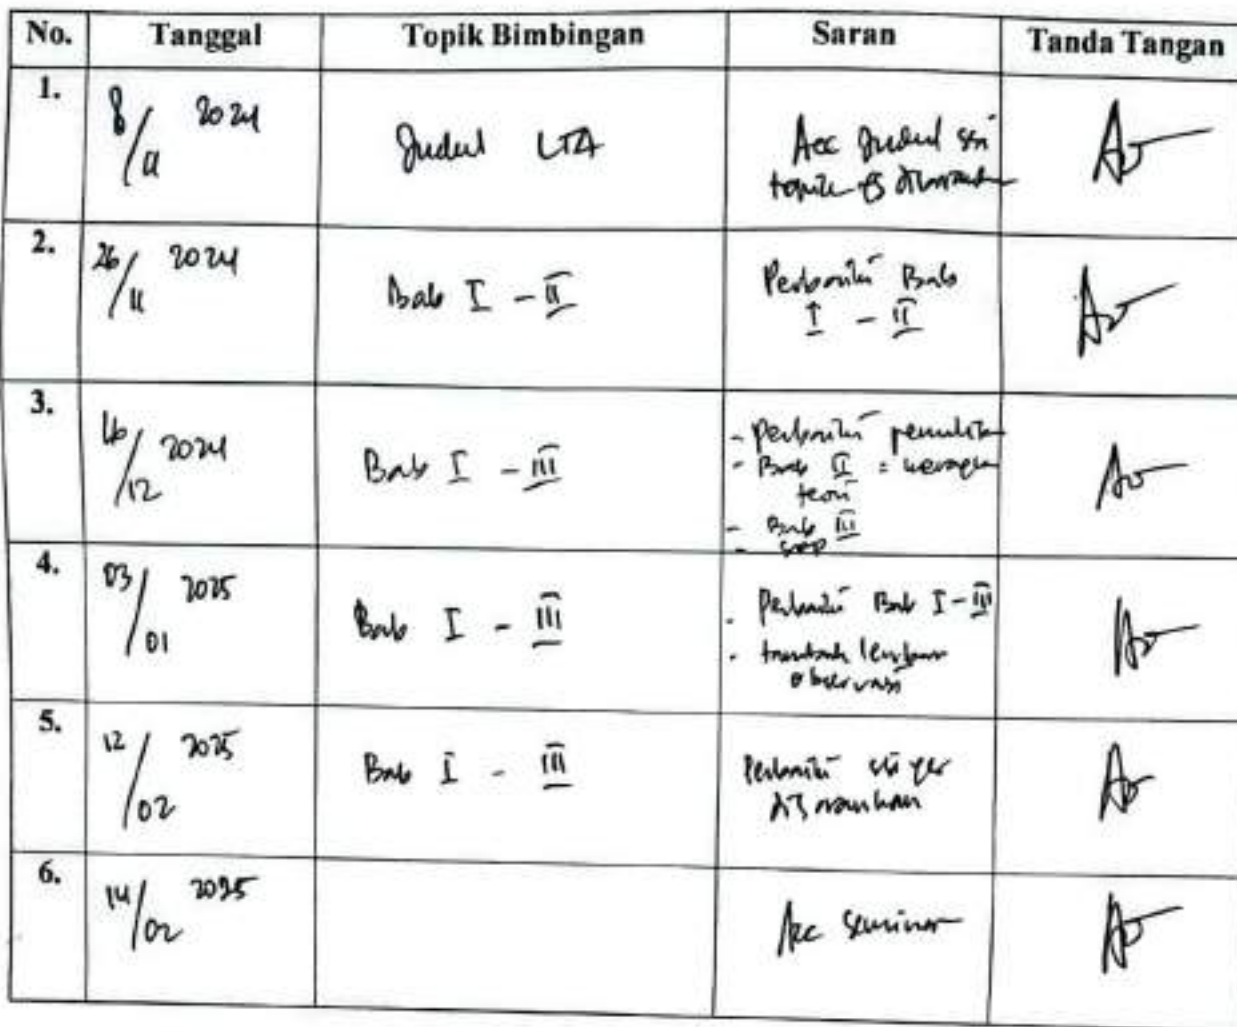 No. Tanggal Topik Bimbingan Saran Tanda Tangan
1. 8/11 2024 Judul LTA Acc Judul ssi
topik yg disarankan
2. 26/11 2024 Bab I - II Perbaiki Bab
I - II
3. 16/12 2024 Bab I - III - Perbaiki penulisan
- Bab II = kerangka
teori
- Bab III
- SOP
4. 03/01 2025 Bab I - III - Perbaiki Bab I - III
- tambah lembar
observasi
5. 12/02 2025 Bab I - III Perbaiki
disarankan
6. 14/02 2025 Acc Seminar